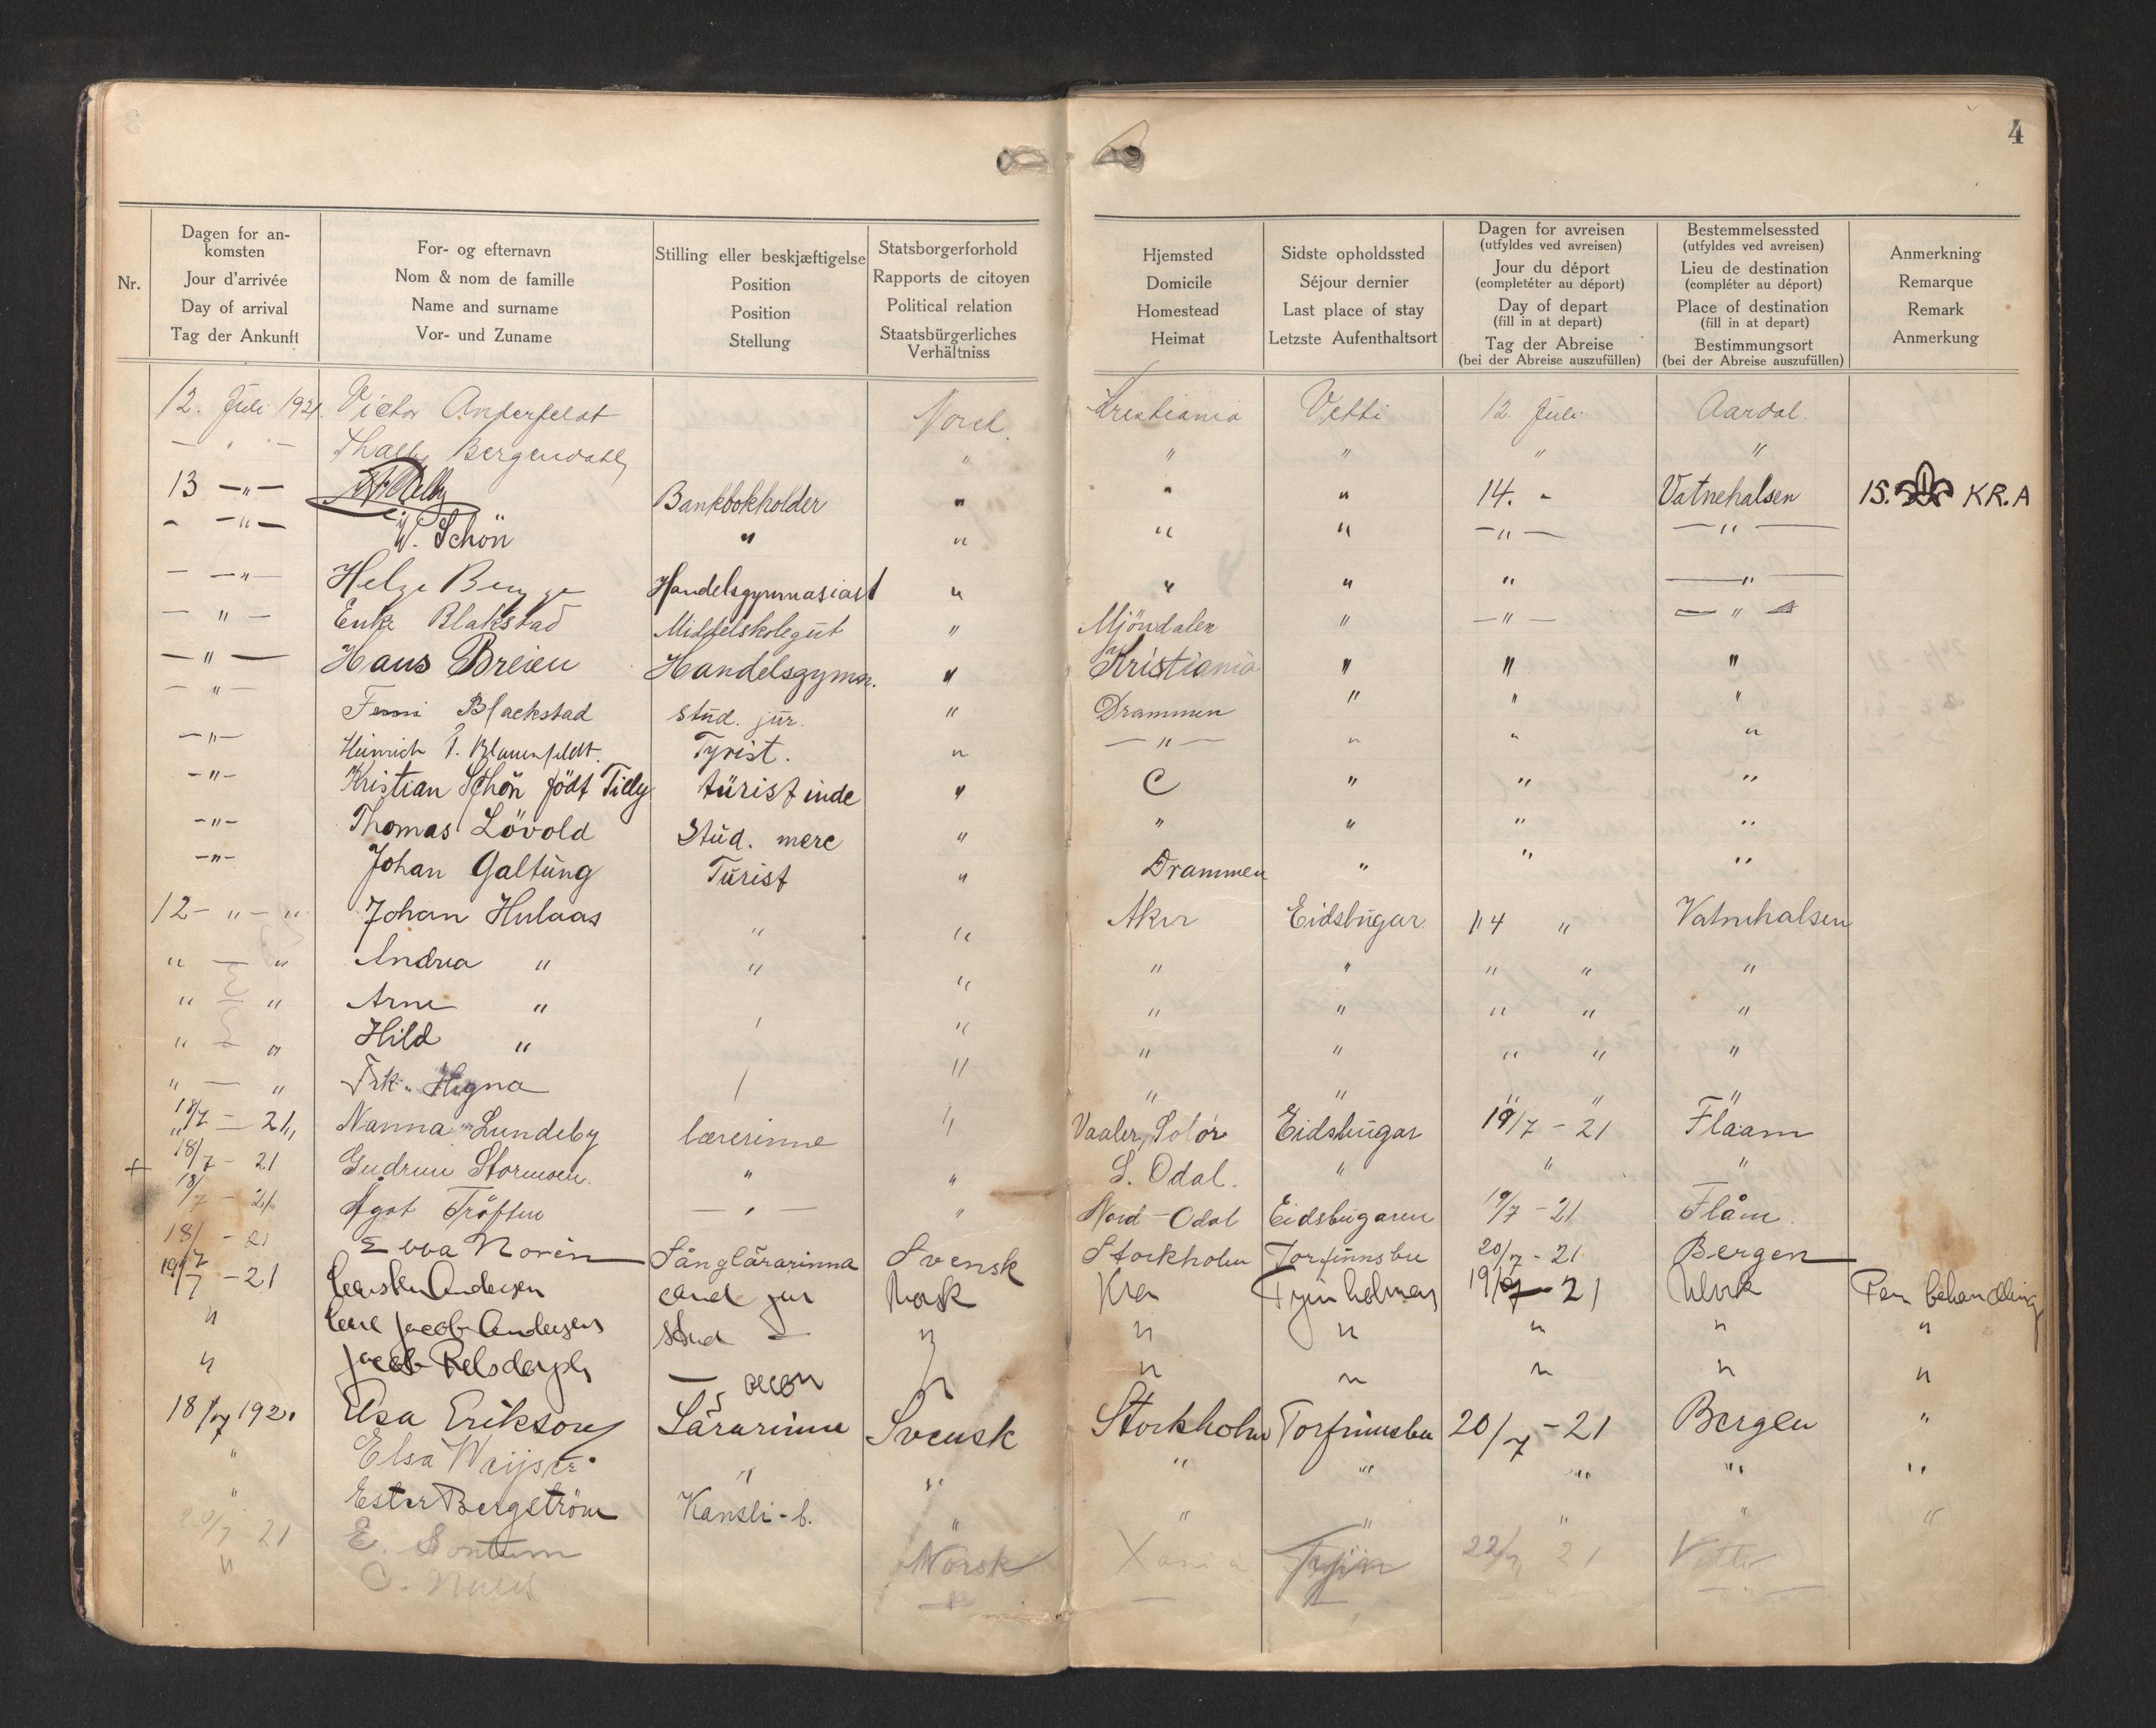 4
Nr.
Dagen for an-
komsten
Jour d'arrivée
Day of arrival
Tag der Ankunft
For- og efternavn
Nom & nom de famille
Name and surname
Vor- und Zuname
Stilling eller beskjæftigelse
Position
Position
Stellung
Statsborgerforhold
Rapports de citoyen
Political relation
Staatsbürgerliches
Verhältniss
Hjemsted
Domicile
Homestead
Heimat
Sidste opholdssted
Séjour dernier
Last place of stay
Letzste Aufenthaltsort
Dagen for avreisen
(utfyldes ved avreisen)
Jour du départ
(completéter au départ)
Day of depart
(fill in at depart)
Tag der Abreise
(bei der Abreise auszufüllen)
Bestemmelsessted
(utfyldes ved avreisen)
Lieu de destination
(compléter au départ)
Place of destination
(fill in at depart)
Bestimmungsort
(bei der Abreise auszufüllen)
Anmerkning
Remarque
Remark
Anmerkung
12. Juli 1921. Victor Kristiania Vetti 12 Juli Aardal.
— " — Bergendahl " " " " "
13 —"— Bankbokholder " " " 14. " Vatnehalsen 15. KR.A
- —"— W. Schön " " " " —"— —"—
— —"— Helge Handelsgymnasiast " " " " —"—
— " — Blakstad Middelskolegut " Mjöndalen " —"— —"—
—"— Hans Breien Handelsgymn. " Kristiania " " "
— " — Blackstad stud. jur. " Drammen " " "
—"— Heinrich Tyrist. " —"— " " "
—"— Kristian Schön födt Tilly türistinde " " " "
—"— Thomas Lövold Stud. merc " " " " "
—"— Johan Galtung Turist " Drammen " " "
12 — " — " Johan Hulaas " " Aker Eidsbugar 14 " Vatnehalsen
" — " Andrea " " " " " " " "
" — " Arne " " " " " " "
" — " Hild " " " " " " "
" — " Frk. Hegna " " " " " "
18/7 — 21, Nanna Lundeby lærerinne " Vaaler, Solør Eidsbugar 19/7 - 21 Flaam
+ 18/7 - 21 Gudrun Stormoen. " " S. Odal. " " "
18/7 - 21 Ågot Tröften — " — " Nord-Odal Eidsbugaren 19/7 - 21 Flåm.
18/7 - 21 Ebba Norén Sånglärarinna Svensk Stockholm Torfinnsbu 20/7 - 21 Bergen
19/7 - 21 Carsten Andersen cand jur Norsk Kra Tyinholmen 19/7 - 21 behandling
" Carl Jacob Andersen stud — " " " " " "
" Jacob — oecon " " " " " "
18/7 1921 Elsa Erikson Lärarinna Svensk Stockholm Torfinnsbu 20/7 - 21 Bergen "
" Elsa " " " " " " "
" Ester Bergström Kansli-b. " " " " " "
20/7 21 E. Norsk Xania Tyin 22/7 21 Vetti
" —"—